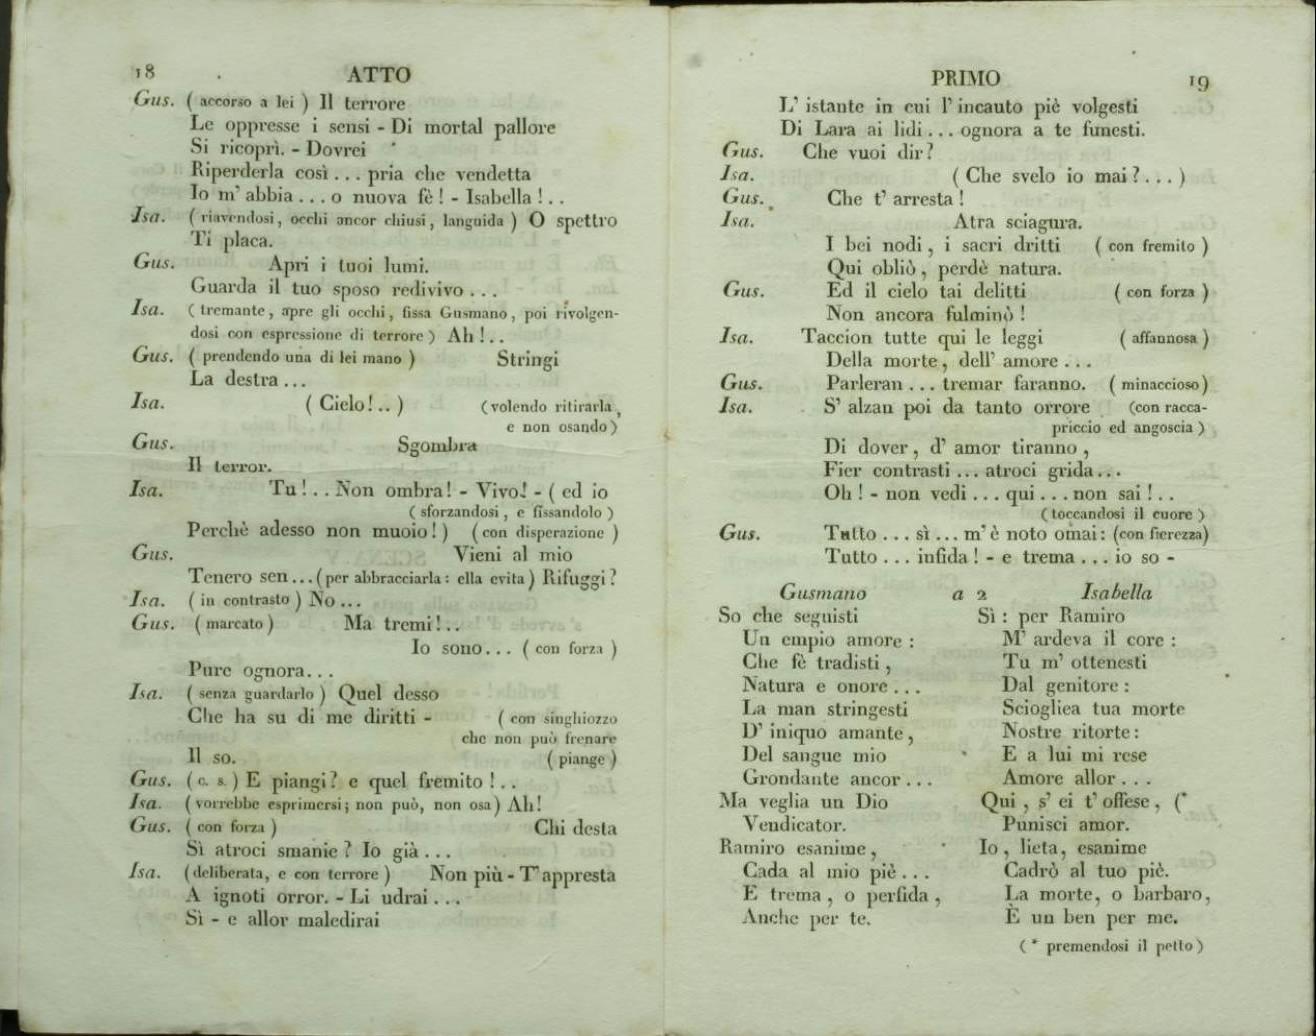 18 ATTO
Gus. ( accorso a lei ) Il terrore
Le oppresse i sensi - Di mortal pallore
Si ricoprì. - Dovrei
Riperderla così . . . pria che vendetta
Io m' abbia . . . o nuova fè ! - Isabella ! . .
Isa. ( riavendosi, occhi ancor chiusi, languida ) O spettro
Ti placa.
Gus. Apri i tuoi lumi.
Guarda il tuo sposo redivivo . . .
Isa. ( tremante, apre gli occhi, fissa Gusmano, poi rivolgen-
dosi con espressione di terrore ) Ah ! . .
Gus. ( prendendo una di lei mano ) Stringi
La destra . . .
Isa. ( Cielo ! . . ) (volendo ritirarla,
e non osando )
Gus. Sgombra
Il terror.
Isa. Tu ! . . Non ombra ! - Vivo! - ( ed io
( sforzandosi, e fissandolo )
Perchè adesso non muoio ! ) ( con disperazione )
Gus. Vieni al mio
Tenero sen . . . ( per abbracciarla : ella evita ) Rifuggi ?
Isa. ( in contrasto ) No . . .
Gus. ( marcato ) Ma tremi ! . .
Io sono . . . ( con forza )
Pure ognora. . .
Isa. ( senza guardarlo ) Quel desso
Che ha su di me diritti - ( con singhiozzo
che non può frenare
Il so. ( piange )
Gus. ( c. s. ) E piangi ? e quel fremito ! . .
Isa. ( vorrebbe esprimersi ; non può, non osa ) Ah !
Gus. ( con forza ) Chi desta
Sì atroci smanie ? Io già . . .
Isa. (deliberata, e con terrore ) Non più - T' appresta
A ignoti orror. - Li udrai . . .
Sì - e allor maledirai
PRIMO 19
L' istante in cui l' incauto piè volgesti
Di Lara ai lidi . . . ognora a te funesti.
Gus. Che vuoi dir ?
Isa. ( Che svelo io mai ? . . . )
Gus. Che t' arresta !
Isa. Atra sciagura.
I bei nodi, i sacri dritti ( con fremito )
Qui obliò, perdè natura.
Gus. Ed il cielo tai delitti ( con forza )
Non ancora fulminò !
Isa. Taccion tutte qui le leggi ( affannosa )
Della morte, dell' amore . . .
Gus. Parleran . . . tremar faranno. ( minaccioso )
Isa. S' alzan poi da tanto orrore (con racca-
priccio ed angoscia )
Di dover, d' amor tiranno,
Fier contrasti . . . atroci grida . . .
Oh ! - non vedi . . . qui . . . non sai ! . .
( toccandosi il cuore )
Gus. Tutto . . . sì . . . m' è noto omai : (con fierezza)
Tutto . . . infida ! - e trema . . . io so -
Gusmano a 2 Isabella
So che seguisti Sì : per Ramiro
Un empio amore : M' ardeva il core :
Che fè tradisti, Tu m' ottenesti
Natura e onore . . . Dal genitore :
La man stringesti Sciogliea tua morte
D' iniquo amante, Nostre ritorte :
Del sangue mio E a lui mi rese
Grondante ancor . . . Amore allor . . .
Ma veglia un Dio Qui, s' ei t' offese, (*
Vendicator. Punisci amor.
Ramiro esanime, Io, lieta, esanime
Cada al mio piè . . . Cadrò al tuo piè.
E trema, o perfida, La morte, o barbaro,
Anche per te. È un ben per me.
( * premendosi il petto )